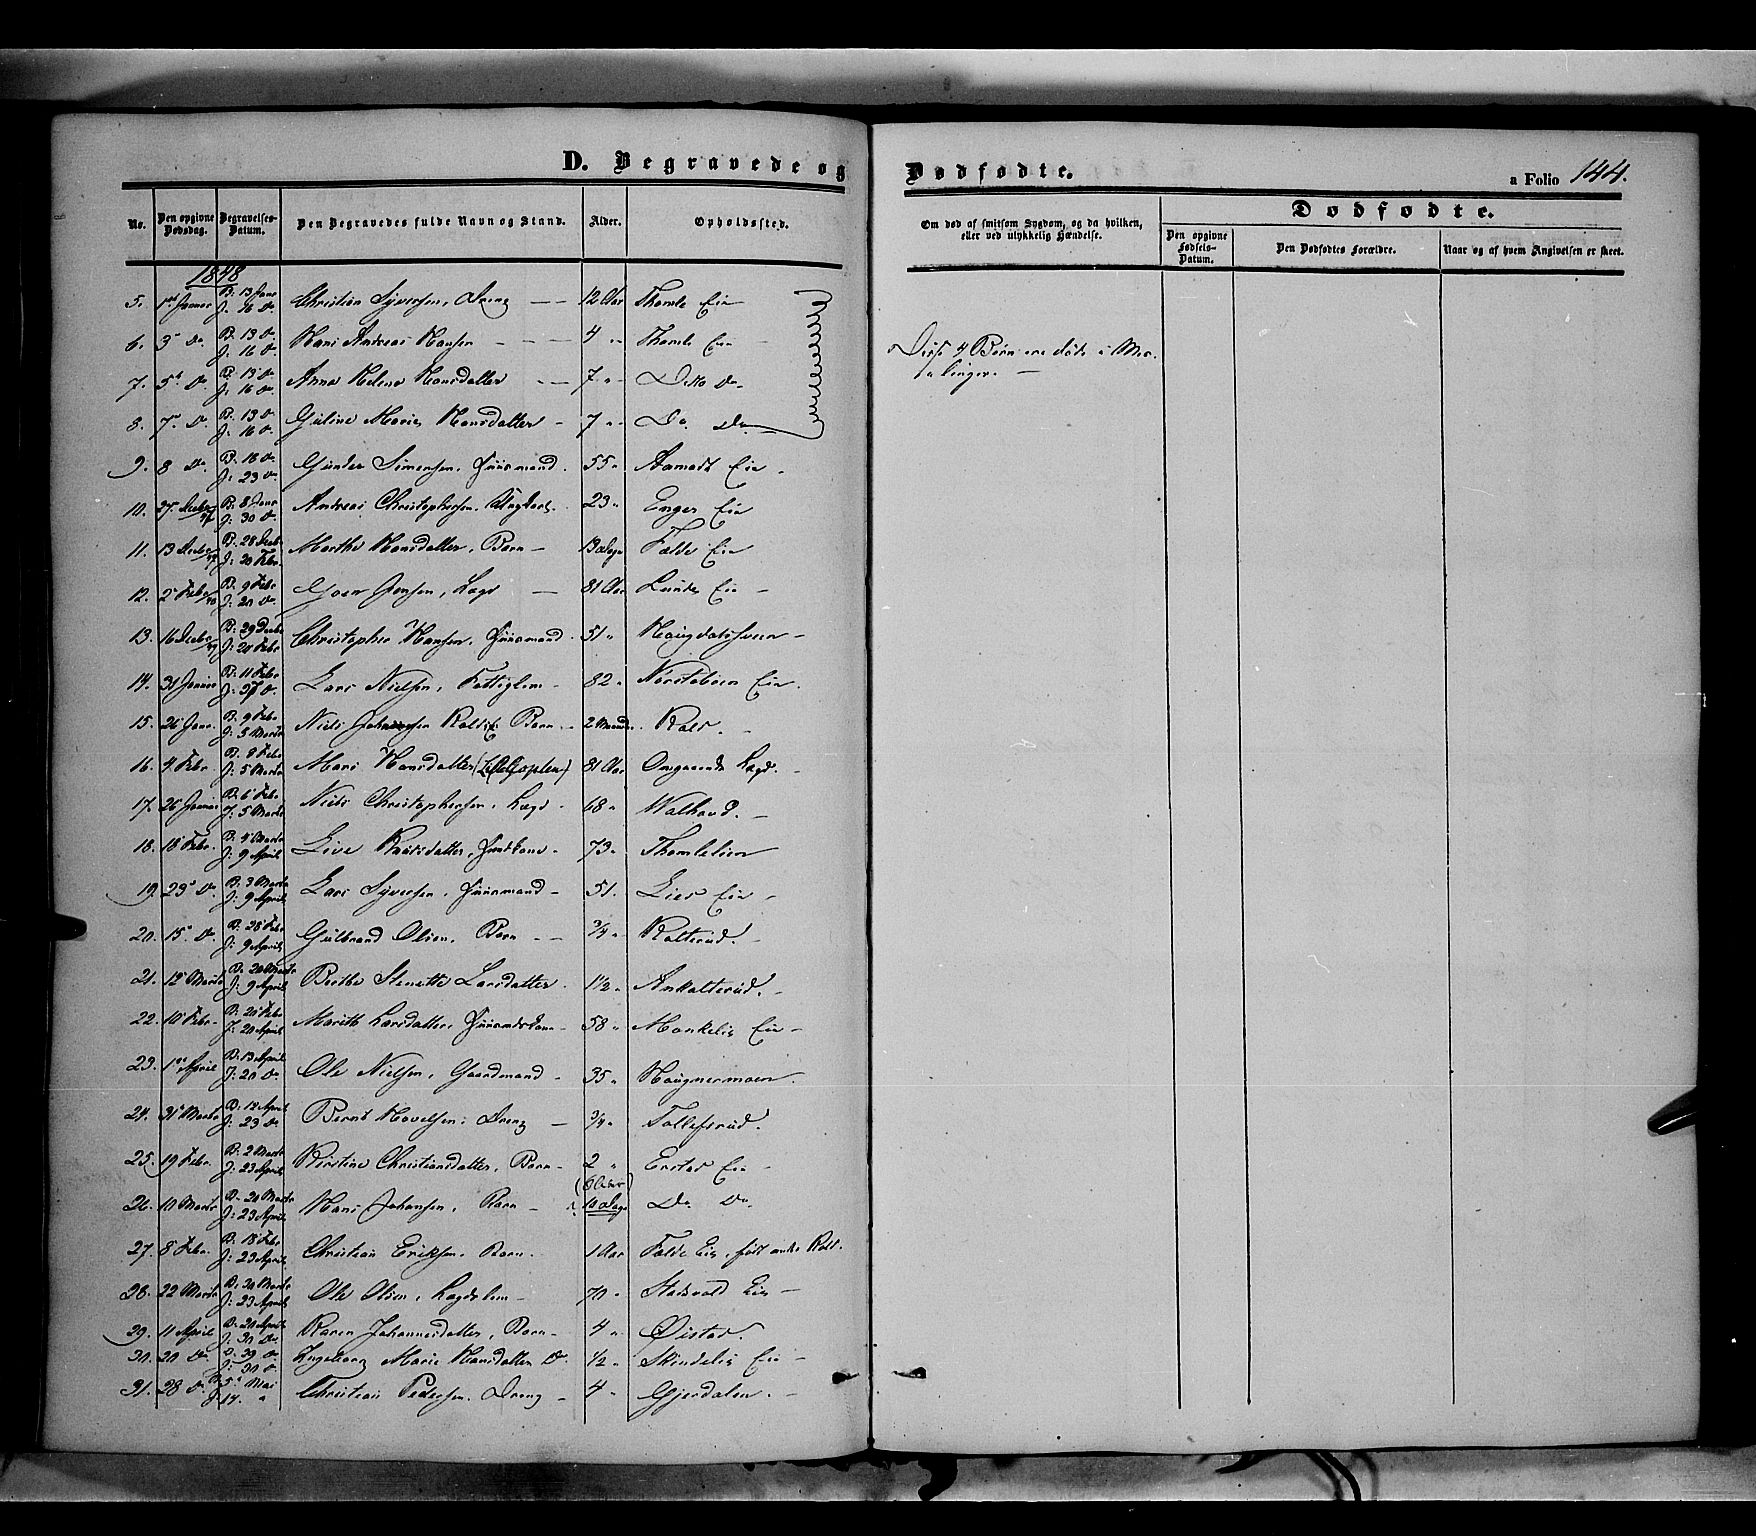 D. Begravede og Dødfødte.
a Folio 144.
No. Den opgivne Dødsdag. Begravelses-Datum. Den Begravedes fulde Navn og Stand. Alder. Opholdssted.
Om død af smitsom Sygdom, og da hvilken, eller ved ulykkelig Hændelse.
Dødfødte.
Den opgivne Fødsels-Datum. Den Dødfødtes Forældre. Naar og af hvem Angivelsen er skeet.
1848
5. 1ste Januar B: 13 Janr J: 16 Do Christian Syversen, Dreng — 12 Aar Thomle Eie
6. 3die Do B: 13 Do J: 16 Do Hans Andreas Hansen — 4 " Thomle Eie
7. 5te Do B: 13 Do J: 16 Do Anna Helene Hansdatter — 7 " Dito Do
8. 7de Do B: 13 Do J: 16 Do Guline Marie Hansdatter — 7 " Do Do
Disse 4 Børn ere døde i Mæslinger. —
9. 8 Do B: 18 Do J: 23 Do Gunder Simensen, Huusmand. 55 " Aamodt Eie
10. 27 Decbr 47 B: 8 Janr J: 30 Do Andreas Christophersen, 23 " Enger Eie
11. 13 Decbr 47 B: 28 Decbr J: 20 Febr. Marthe Hansdatter, Barn — 13 Dage Falde Eie
12. 2 Febr 48 B: 9 Febr J: 20 Do Jensen, Lægd — 81 Aar Lunde Eie —
13. 16 Decbr 47 B: 29 Decbr J: 20 Febr Christopher Hansen, Huusmand. 51 " Haugdalshveen —
14. 31 Januar B: 11 Febr J: 27 Do Lars Nielsen, Fattiglem — 82 " Eie.
15. 26 Janr. B: 9 Febr. J: 5 Marts Niels Johansen Barn — 2 Maander Rold. —
16. 4 Febr B: 8 Febr J: 5 Marts Mari Hansdatter 81 Aar Omgaaende Lægd. —
17. 26 Januar B: 6 Febr J: 5 Marts Niels Christophersen, Lægd. 68 " Walhovd. —
18. 18 Febr. B: 4 Marts J: 9 April Live Larsdatter, 73 " Thomlelien
19. 23 Do B: 3 Marts J: 9 April Lars Syversen, Huusmand — 51. Lier Eie —
20. 15 Do B: 28 Febr J: 9 April Gulbrand Olsen, Barn — 3/4 " Kolterud. —
21. 12 Marts B: 20 Marts J: 9 April Berthe Stenette Larsdatter. 1 1/2 " Ankalterud. —
22. 10 Febr — B: 21 Febr J: 20 April Marith Larsdatter, Huusmandskone — 58 " Mankelie Eie —
23. 1ste April B: 13 April J: 20 Do Ole Nielsen, Gaardmand — 35 " Haugnermoen.
24. 31 Marts B: 12 April J: 23 Do Bernt Hovelsen, Dreng — 3/4 " Tollefsrud.
25. 19 Febr. B: 2 Marts J: 23 April Kirstine Christiansdatter, Barn — 2 " Erstad Eie —
26. 10 Marts B: 20 Marts J: 23 April Hans Johansen, Barn — 10 Dage Do Do
27. 8 Febr. B: 18 Febr J: 23 April Christian Eriksen, Barn. 1 Aar Falde Eie, født under Rold.
28. 22 Marts B: 30 Marts J: 23 April Ole Olsen, Lægdslem — 70 " Stadsvold Eie —
29. 11 April B: 20 April J: 30 Do Karen Johannesdatter, Barn — 4 " Øistad.
30. 20 Do B: 30 Do J: 30 Do Ingeborg Marie Hansdatter Do. 1/2 " Skindelie Eie —
31. 28 Do B: 5 Mai J: 14 " Christian Pedersen, Dreng — 4 " Gjerdalen. —